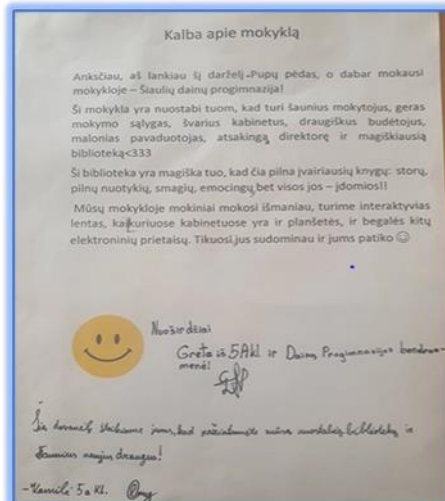 Kalba apie mokyklą
Anksčiau, aš lankiau šį darželį-Pupų pėdas, o dabar mokausi
mokykloje – Šiaulių dainų progimnazija!
Ši mokykla yra nuostabi tuom, kad turi šaunius mokytojus, geras
mokymo sąlygas, švarius kabinetus, draugiškus budėtojus,
malonias pavaduotojas, atsakingą direktorę ir magiškiausią
biblioteką<333
Ši biblioteka yra magiška tuo, kad čia pilna įvairiausių knygų: storų,
pilnų nuotykių, smagių, emocingų bet visos jos – įdomios!!
Mūsų mokykloje mokiniai mokosi išmaniau, turime interaktyvias
lentas, kaikuriuose kabinetuose yra ir planšetės, ir begalės kitų
elektroninių prietaisų. Tikuosi jus sudominau ir jums patiko ☺
Nuoširdžiai
Greta iš 5A kl. ir Dainų Progimnazijos bendruo-
menė!
jums, kad mūsų biblioteką ir
naujus draugus!
-Kamilė 5a kl.